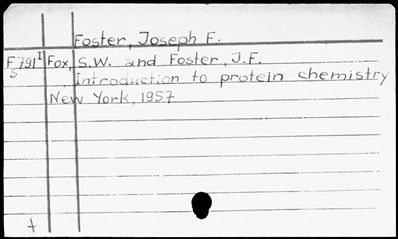 Foster, Joseph F.
F791 I Fox, S.W. and Foster, J.F.
S Introduction to protein chemistry
New York, 1957